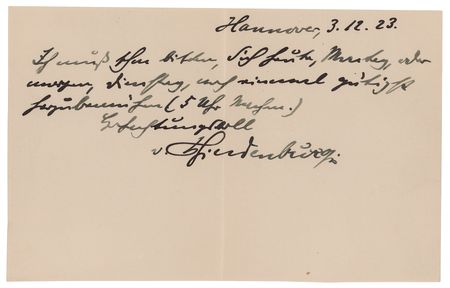 Hannover, 3.12.23.
Ich muß Ihn bitten, Sich heute, Montag, oder
morgen, Dienstag, noch einmal gütigst
herzubemühen (5 Uhr Nachm.)
Hochachtungsvoll
v. Hindenburg.